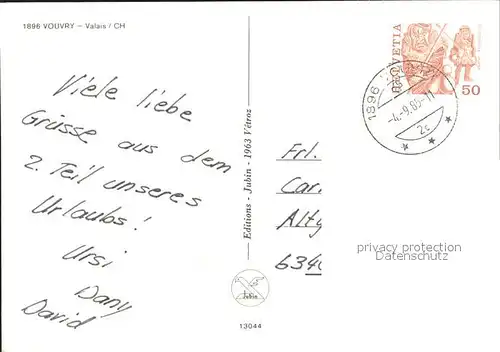 1896 VOUVRY – Valais / CH
Viele liebe
Grüsse aus dem
2. Teil unseres
Urlaubs!
Ursi
Dany
David
Editions - Jubin - 1963 Vétroz
Jubin
13044
HELVETIA
50
1896
-4.-9.85-11
2c
Frl.
Car.
Alty
6340
privacy protection
Datenschutz